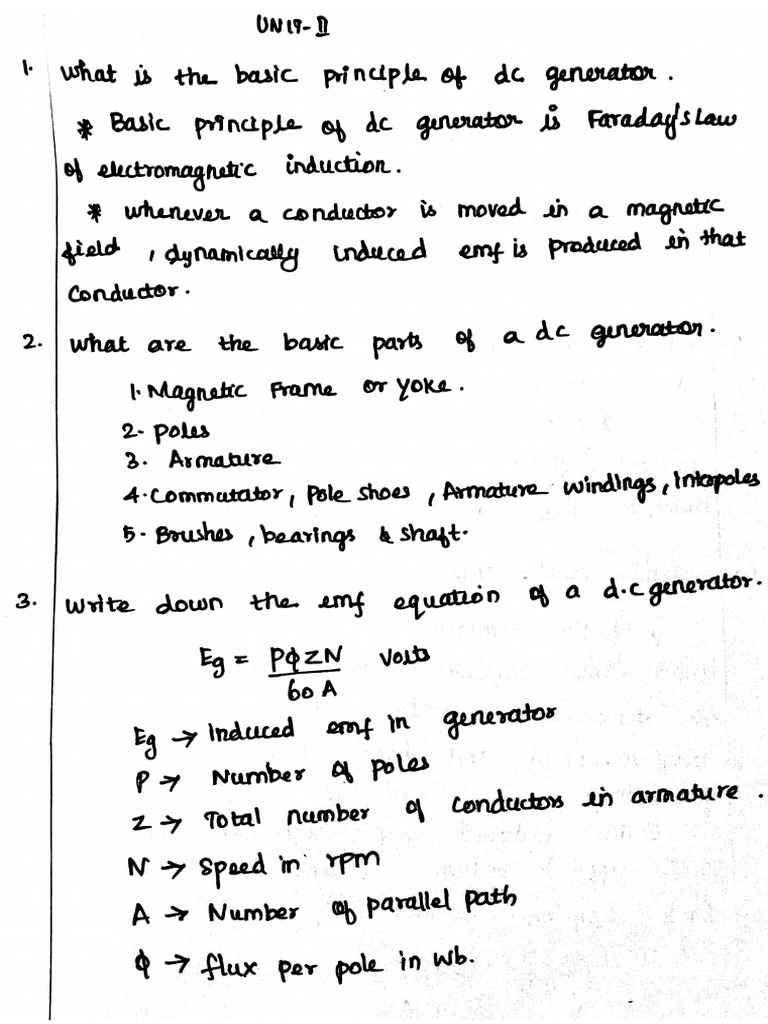 UNIT-II
1. What is the basic principle of dc generator.
* Basic principle of dc generator is Faraday's Law
of electromagnetic induction.
* whenever a conductor is moved in a magnetic
field, dynamically induced emf is produced in that
Conductor.
2. What are the basic parts of a dc generator.
1. Magnetic Frame or Yoke.
2. Poles
3. Armature
4. Commutator, Pole shoes, Armature windings, Interpoles
5. Brushes, bearings & shaft.
3. Write down the emf equation of a d.c generator.
Eg = PϕZN / 60A Volts
Eg → Induced emf in generator
P → Number of poles
Z → Total number of conductors in armature.
N → Speed in rpm
A → Number of parallel path
ϕ → flux per pole in wb.